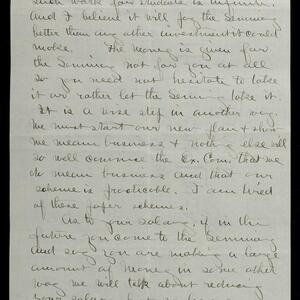 such work for students is infinite.
And I believe it will pay the Seminary
better than any other investment it could
make. The money is given for
the Seminary not for you at all
so you need not hesitate to take
it or rather let the Seminary take it.
It is a wise step in another way.
We must start our new plan & show
we mean business & nothing else will
so well convince the Ex. Com. that we
do mean business and that our
scheme is practicable. I am tired
of these paper schemes.
As to your salary, if in the
future you come to the Seminary
and say you are making a large
amount of money in some other
way we will talk about reducing
your salary